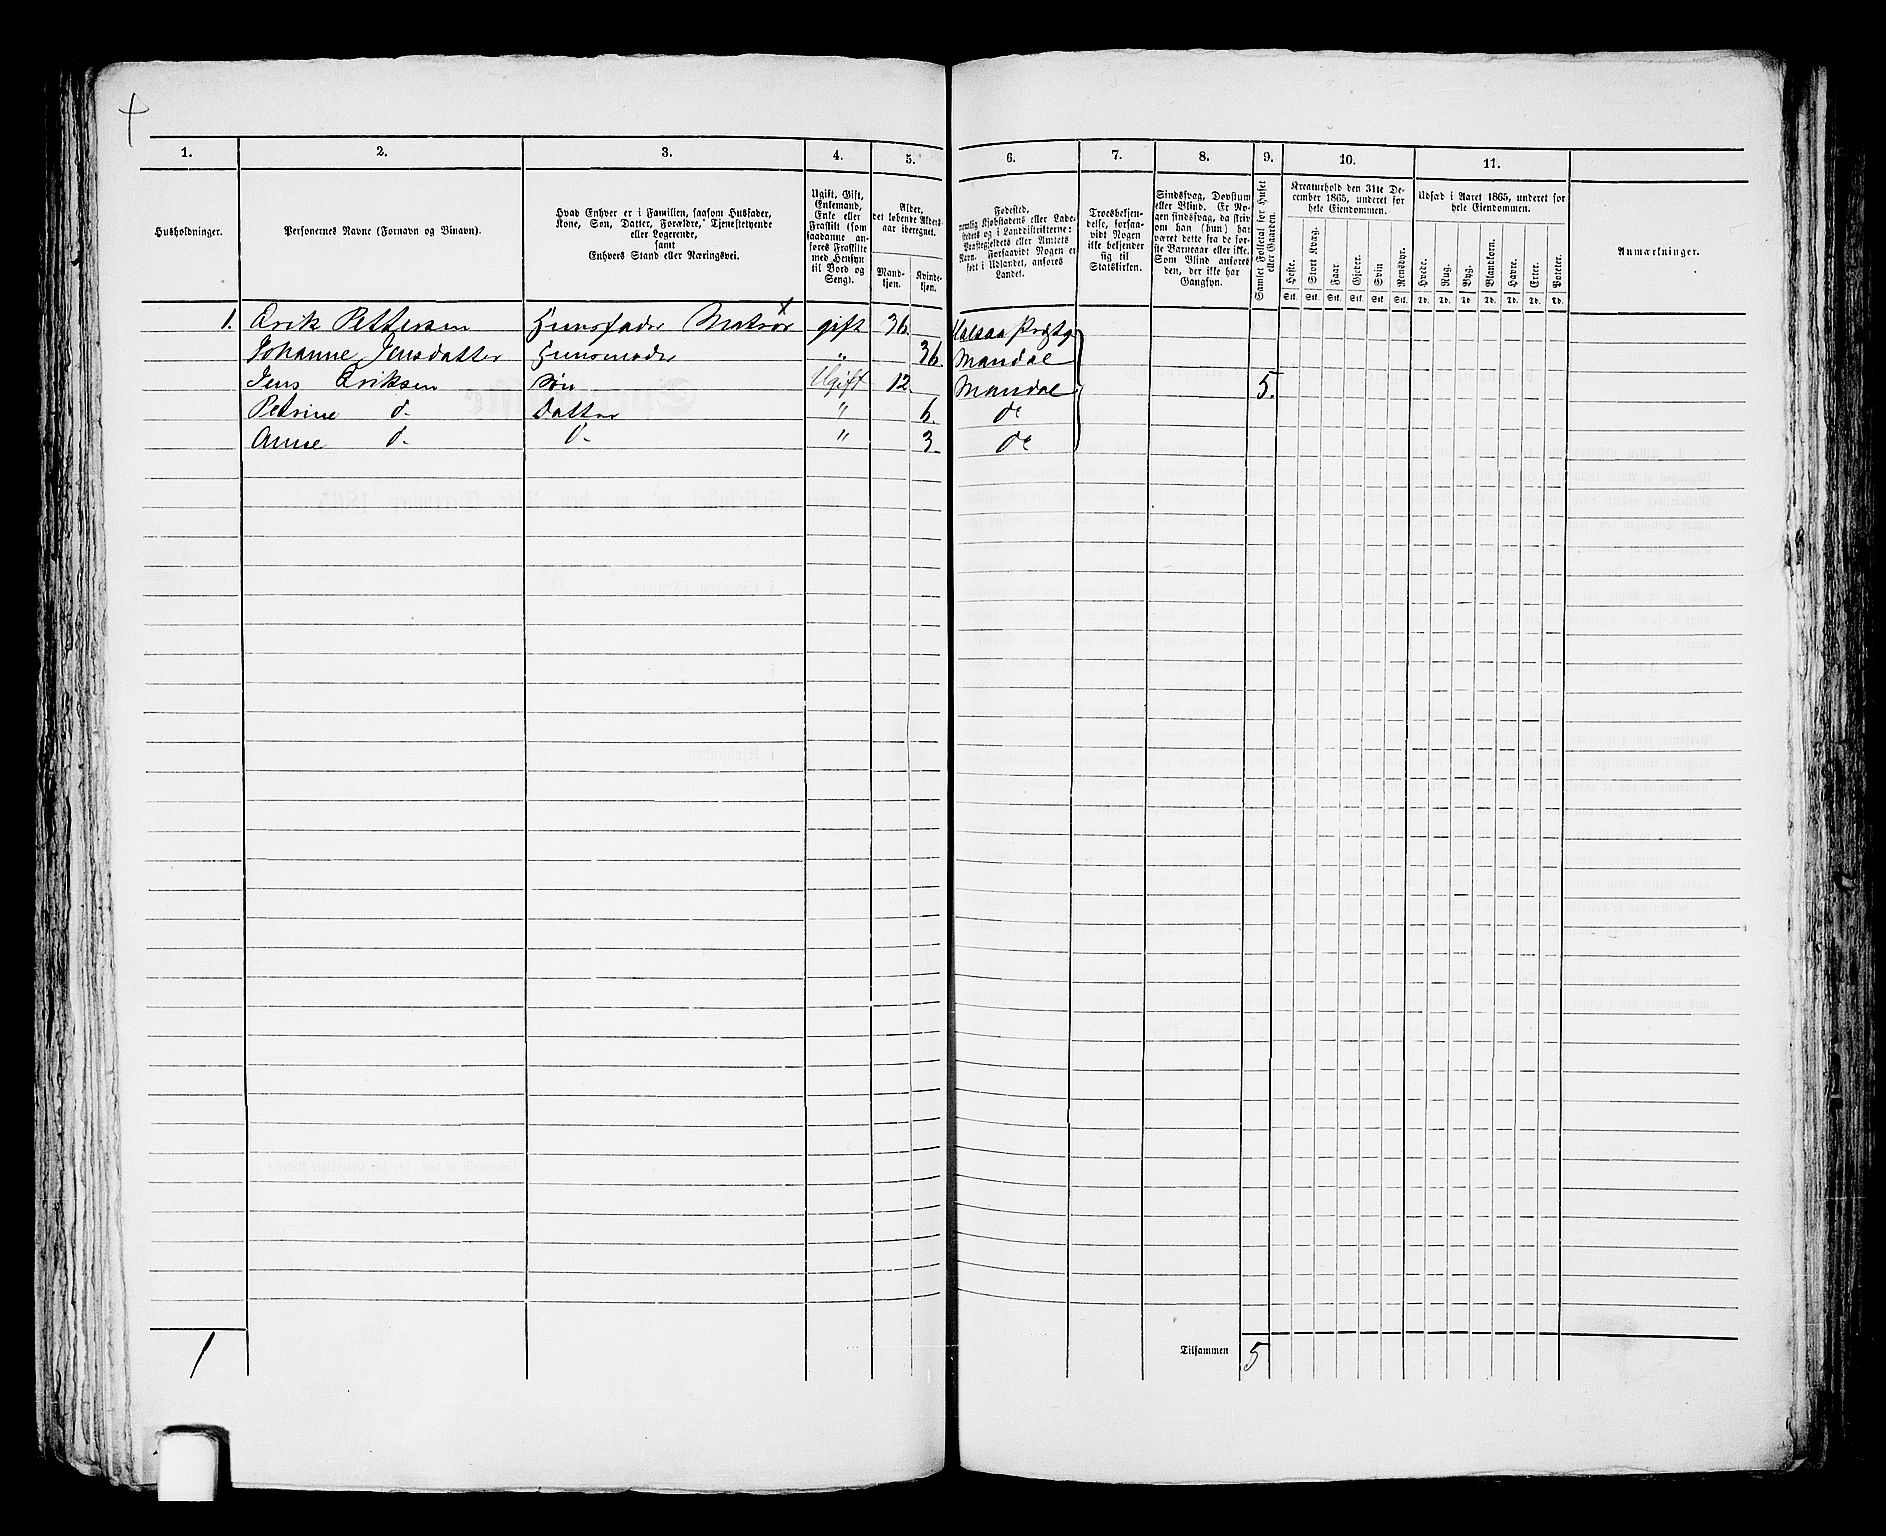 1. 2. 3. 4. 5. 6. 7. 8. 9. 10. 11.
Husholdninger.
Personernes Navne (Fornavn og Binavn).
Hvad Enhver er i Familien, saasom Husfader,
Kone, Søn, Datter, Forældre, Tjenestetyende
eller Logerende,
samt
Enhvers Stand eller Næringsvei.
Ugift, Gift,
Enkemand,
Enke eller
Fraskilt (som
saadanne an-
føres Fraskilte
med Hensyn
til Bord og
Seng).
Alder,
det løbende Alders-
aar iberegnet.
Mand-
kjøn.
Kvinde-
kjøn.
Fødested,
nemlig Kjøbstadens eller Lade-
stedets og i Landdistrikterne:
Præstegjeldets eller Amtets
Navn. Forsaavidt Nogen er
født i Udlandet, anføres
Landet.
Troesbekjen-
delse, forsaa-
vidt Nogen
ikke bekjender
sig til
Statskirken.
Sindssvag, Døvstum
eller Blind. Er No-
gen sindssvag, da skriv
om han (hun) har
været dette fra de før-
ste Barneaar eller ikke.
Som Blind anføres
den, der ikke har
Gangsyn.
Samlet Folketal for Huset
eller Gaarden.
Kreaturhold den 31te De-
cember 1865, underet for
hele Eiendommen.
Heste. Stort Kvæg. Faar. Gjeder. Svin Rensdyr.
Stk. Stk. Stk. Stk. Stk. Stk.
Udsæd i Aaret 1865, underet for
hele Eiendommen.
Hvede. Rug. Byg. Blandkorn. Havre. Erter. Poteter.
Td. Td. Td. Td. Td. Td. Td.
Anmærkninger.
1. Erik Pettersen Huusfader Matros gift 36. Halsaa Prstg
Johanne Jensdatter Huusmoder " 36. Mandal
Jens Eriksen Søn Ugift 12 Mandal 5.
Petrine d. Datter " 6. do
Anne d. d. " 3. do
1
Tilsammen 5